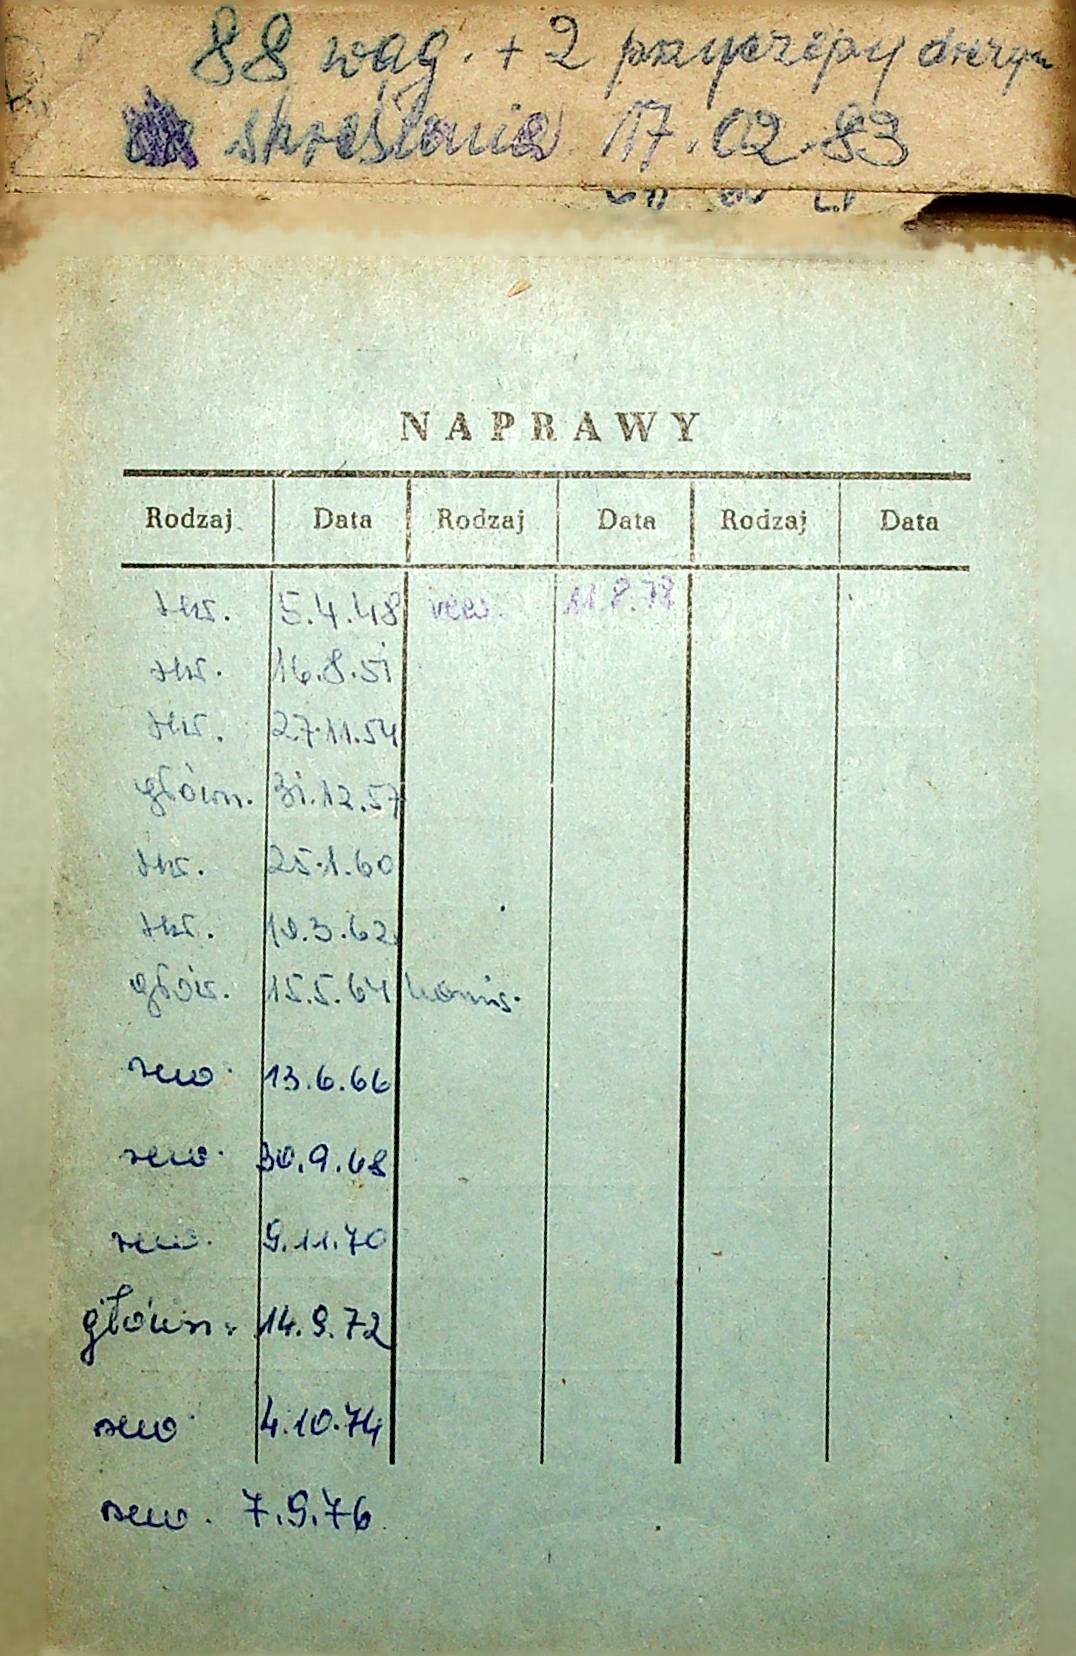 88 wag. + 2 przyczepy
skreślenie 17.02.83
NAPRAWY
Rodzaj Data Rodzaj Data Rodzaj Data
5.4.48 rew. 11.8.78
16.8.51
27.11.54
główn. 31.12.57
25.1.60
10.3.62
głów. 15.5.64
rew. 13.6.66
rew. 30.9.68
rew. 9.11.70
główn. 14.9.72
rew. 4.10.74
rew. 7.9.76